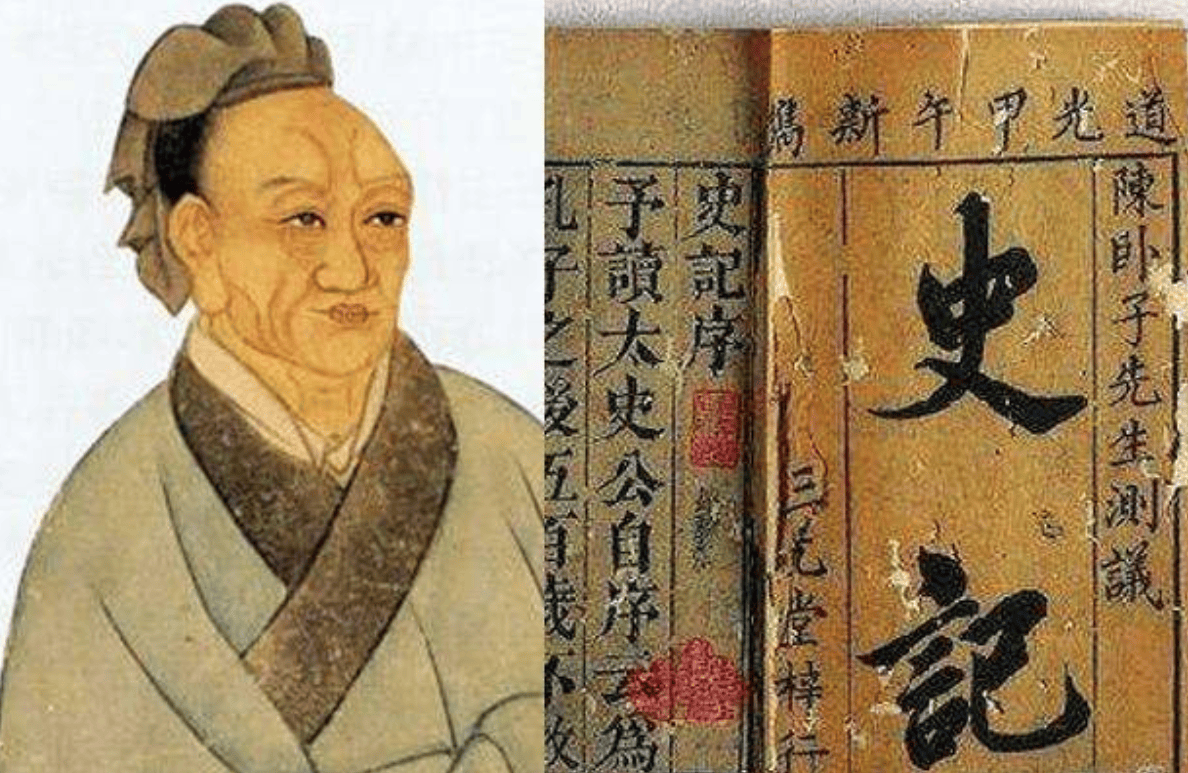 道光甲午新鐫
陳卧子先生測議
史記
三堂梓行
史記序
予讀太史公自序云為
孔子之後五百歲不敢